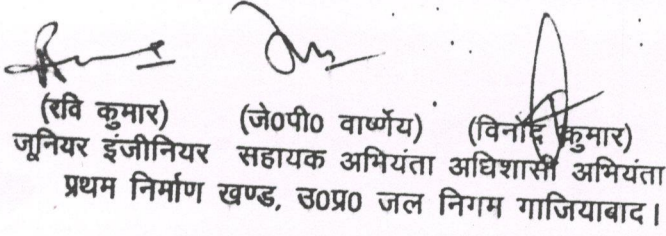 (रवि कुमार) (जे0पी0 वार्ष्णेय) (विनोद कुमार)
जूनियर इंजीनियर सहायक अभियंता अधिशासी अभियंता
प्रथम निर्माण खण्ड, उ0प्र0 जल निगम गाजियाबाद।